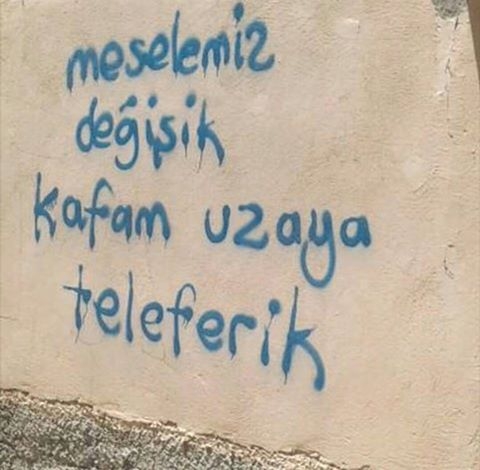 meselemiz
değişik
kafam uzaya
teleferik